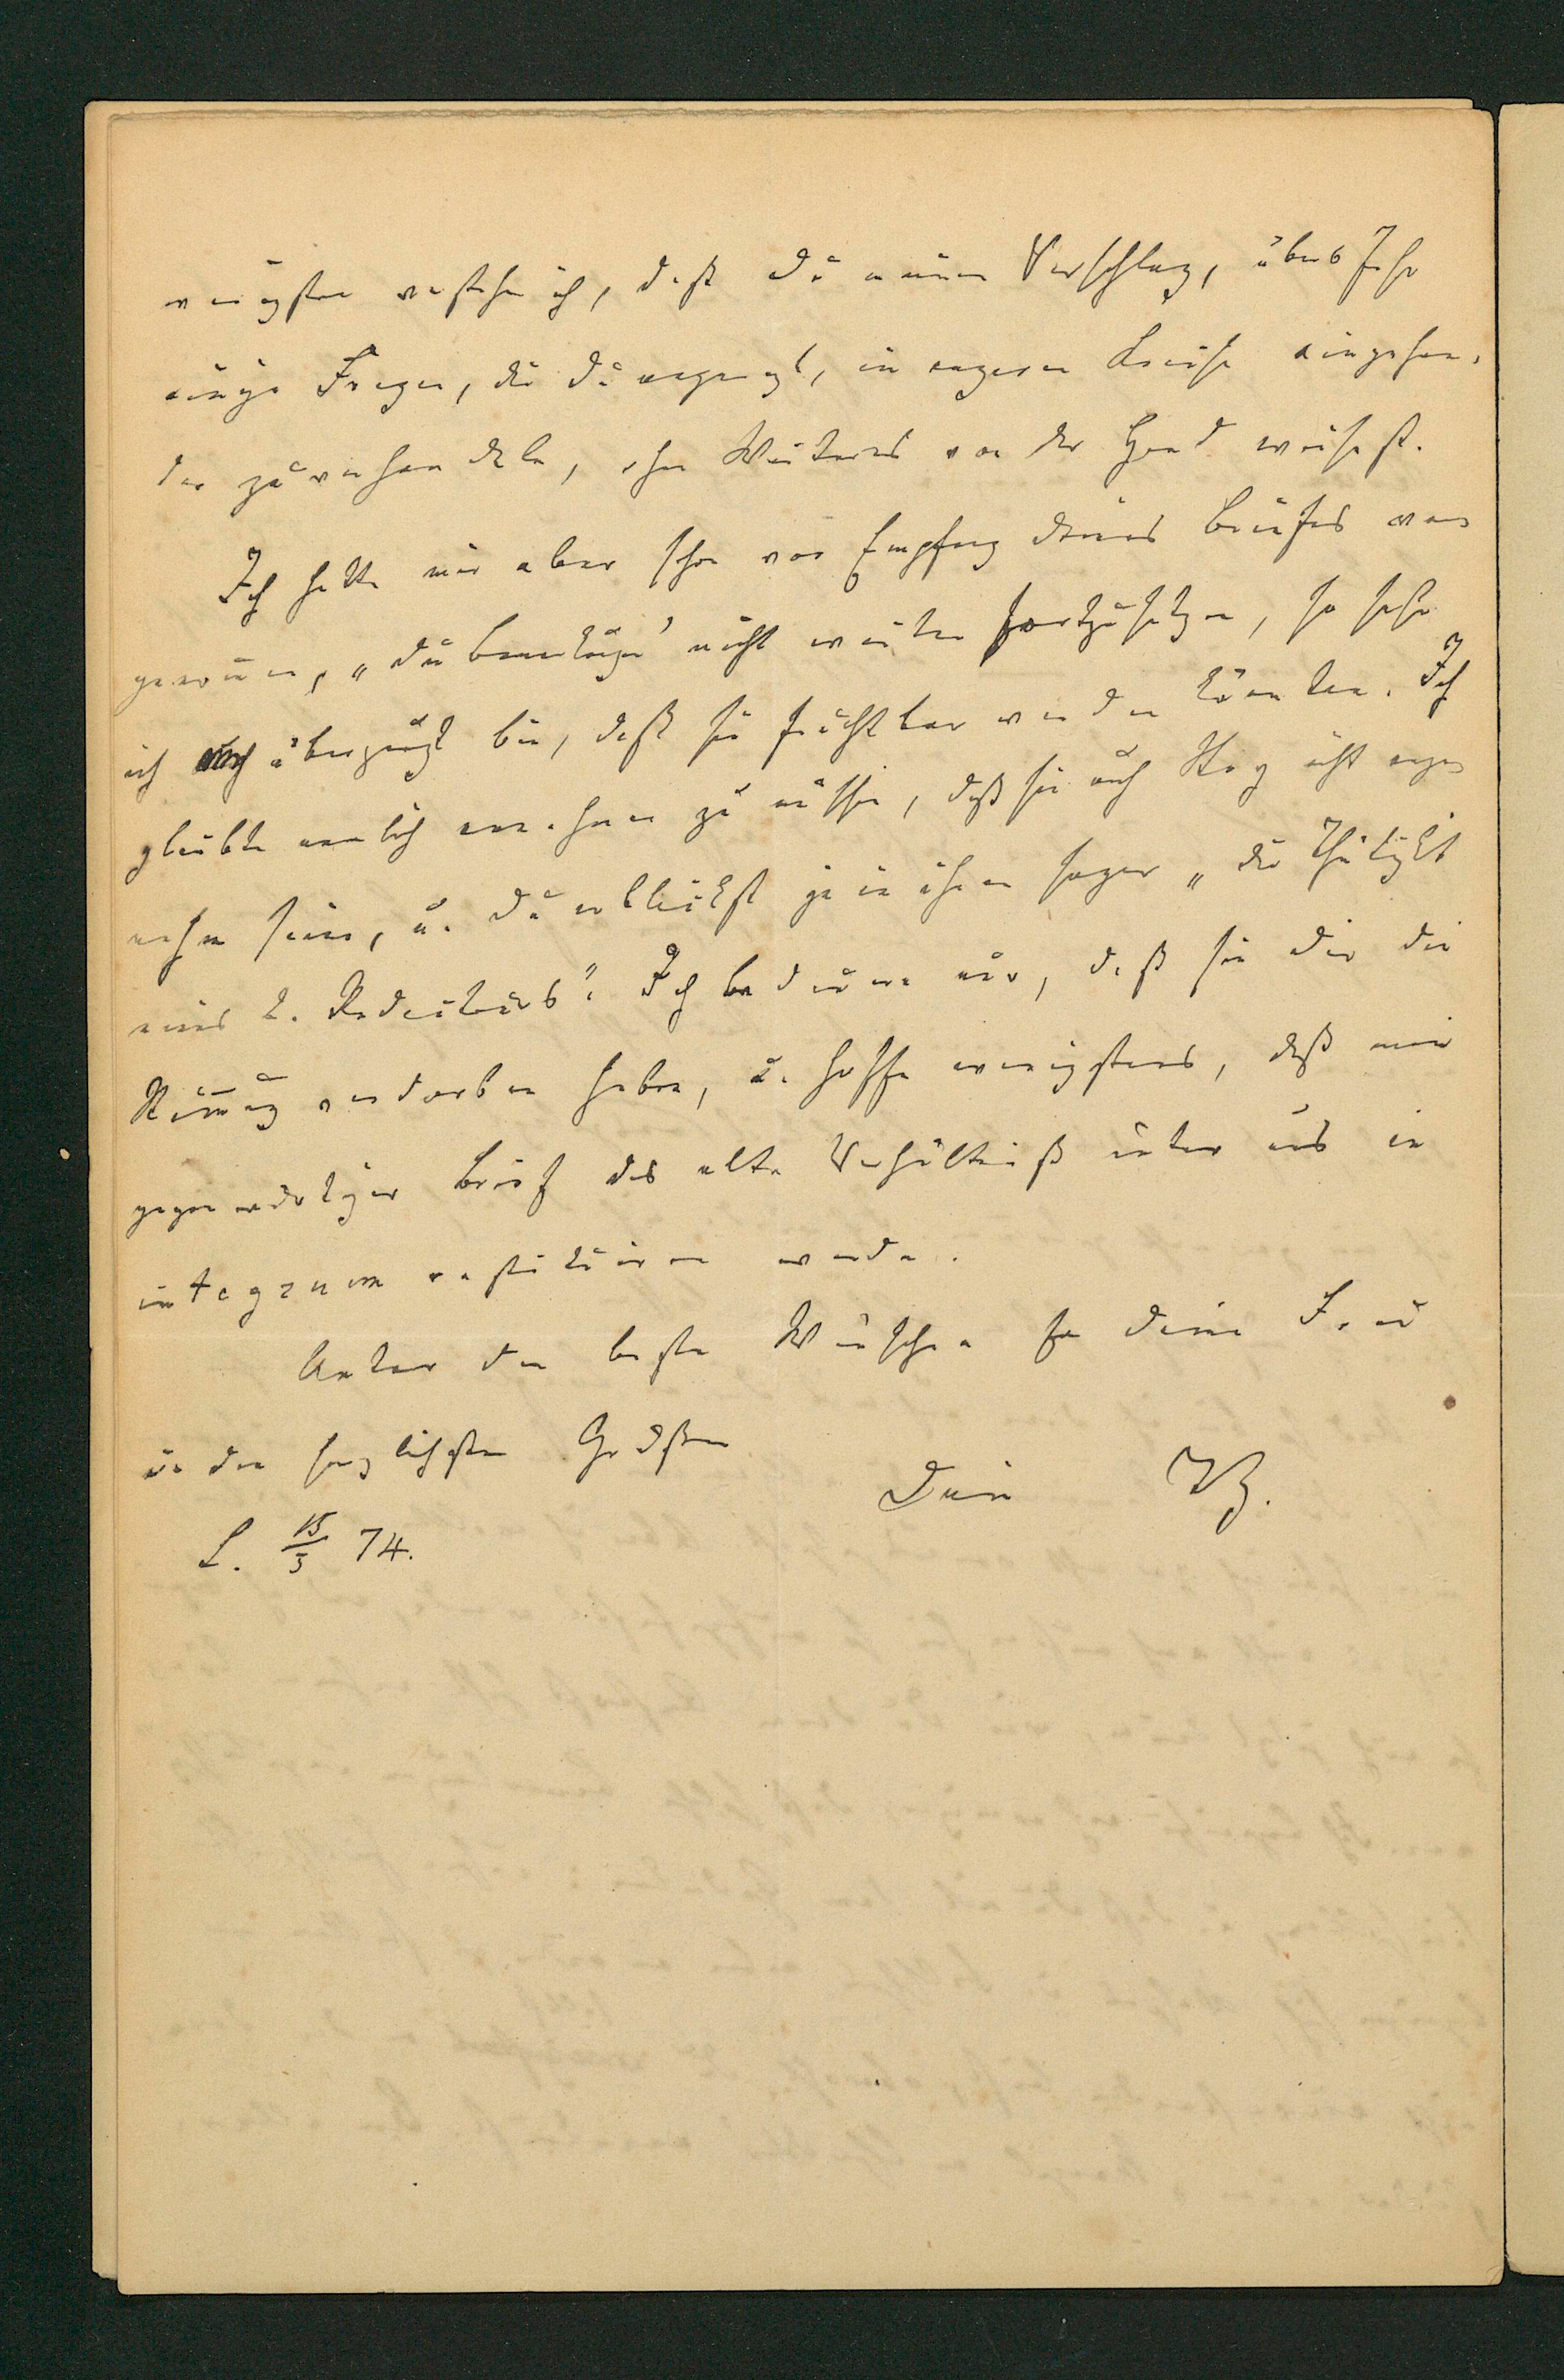 wenigsten verstehe ich, daß Du meinen Vorschlag, übers Jahr
einige Fragen, die Du angeregt, im engeren Kreise eingehen-
der zu verhandeln, ohne Weiteres von der Hand weisest.
Ich hatte mir aber schon vor Empfang Deines Briefes vor
genommen, „die Bemerkungen" nicht weiter fortzusetzen, so sehr
ich überzeugt bin, daß sie fruchtbar werden könnten. Ich
glaubte nemlich annehmen zu müssen, daß sie auch nicht ange
nehm seien, u. Du erblickst ja in ihnen sogar „die Thätigkeit
eines 2. Redacteurs". Ich bedaure nur, daß sie Dir die
Stimmung verdorben haben, u. hoffe wenigstens, daß mein
gegenwärtiger Brief das alte Verhältniß unter uns in
integrum restituiren werde.
Unter den besten Wünschen für Deine Frau
u. den herzlichsten Grüßen
Dein
L. 15/3 74.